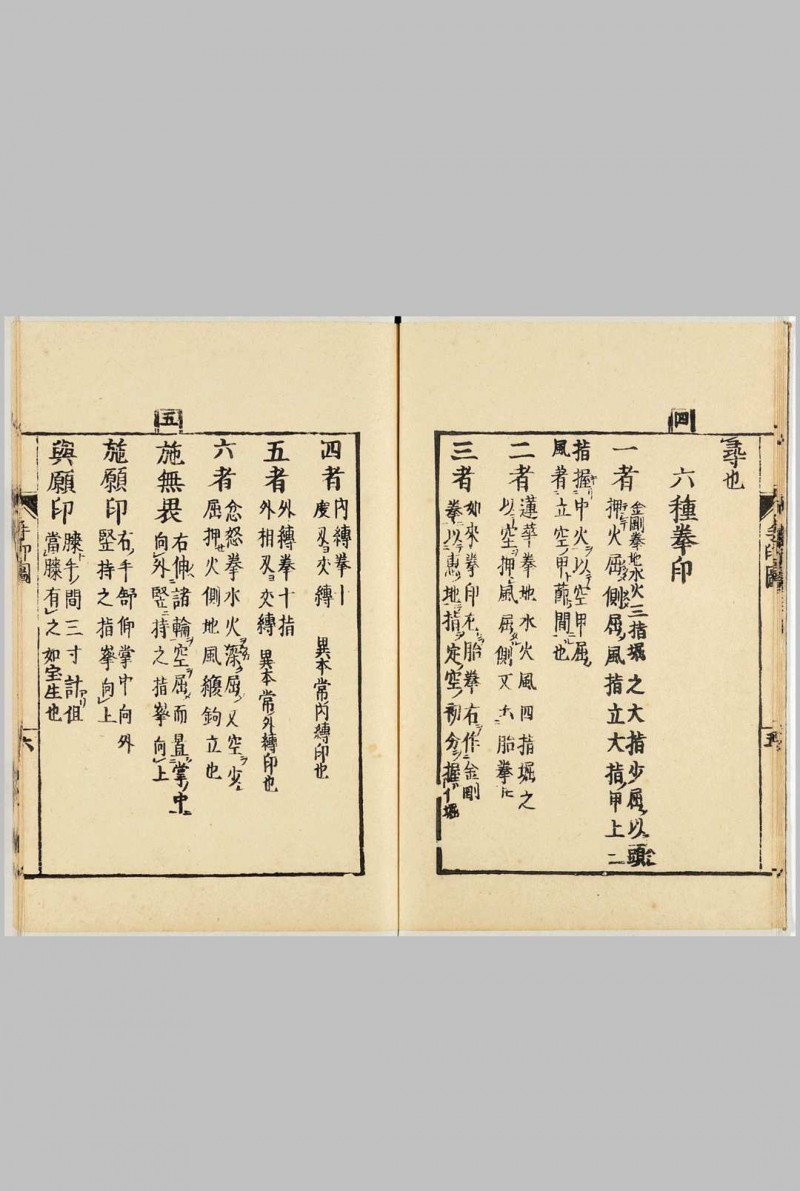 四
尋也
六種拳印
一者
金剛拳地水火三指堀之大指少屈以頭
押火屈側屈風指立大指甲上二
指握中火以空甲屈
風者立空甲節間也
二者
蓮華拳地水火風四指堀之
以空押風屈側又云胎拳
三者
如來拳印左胎拳右作金剛
拳以惠地指定空初分握
手印圖
五
五
四者
內縛拳十
度叉交縛
異本常內縛印也
五者
外縛拳十指
外相叉交縛
異本常外縛印也
六者
忿怒拳水火深屈又空少
屈押火側地風纏鉤立也
施無畏
右伸諸輪空屈而置掌中
向外竪持之指拳向上
施願印
右手舒仰掌中向外
竪持之指拳向上
與願印
膝下手間三寸計但
當膝有之如宝生也
手印圖
六